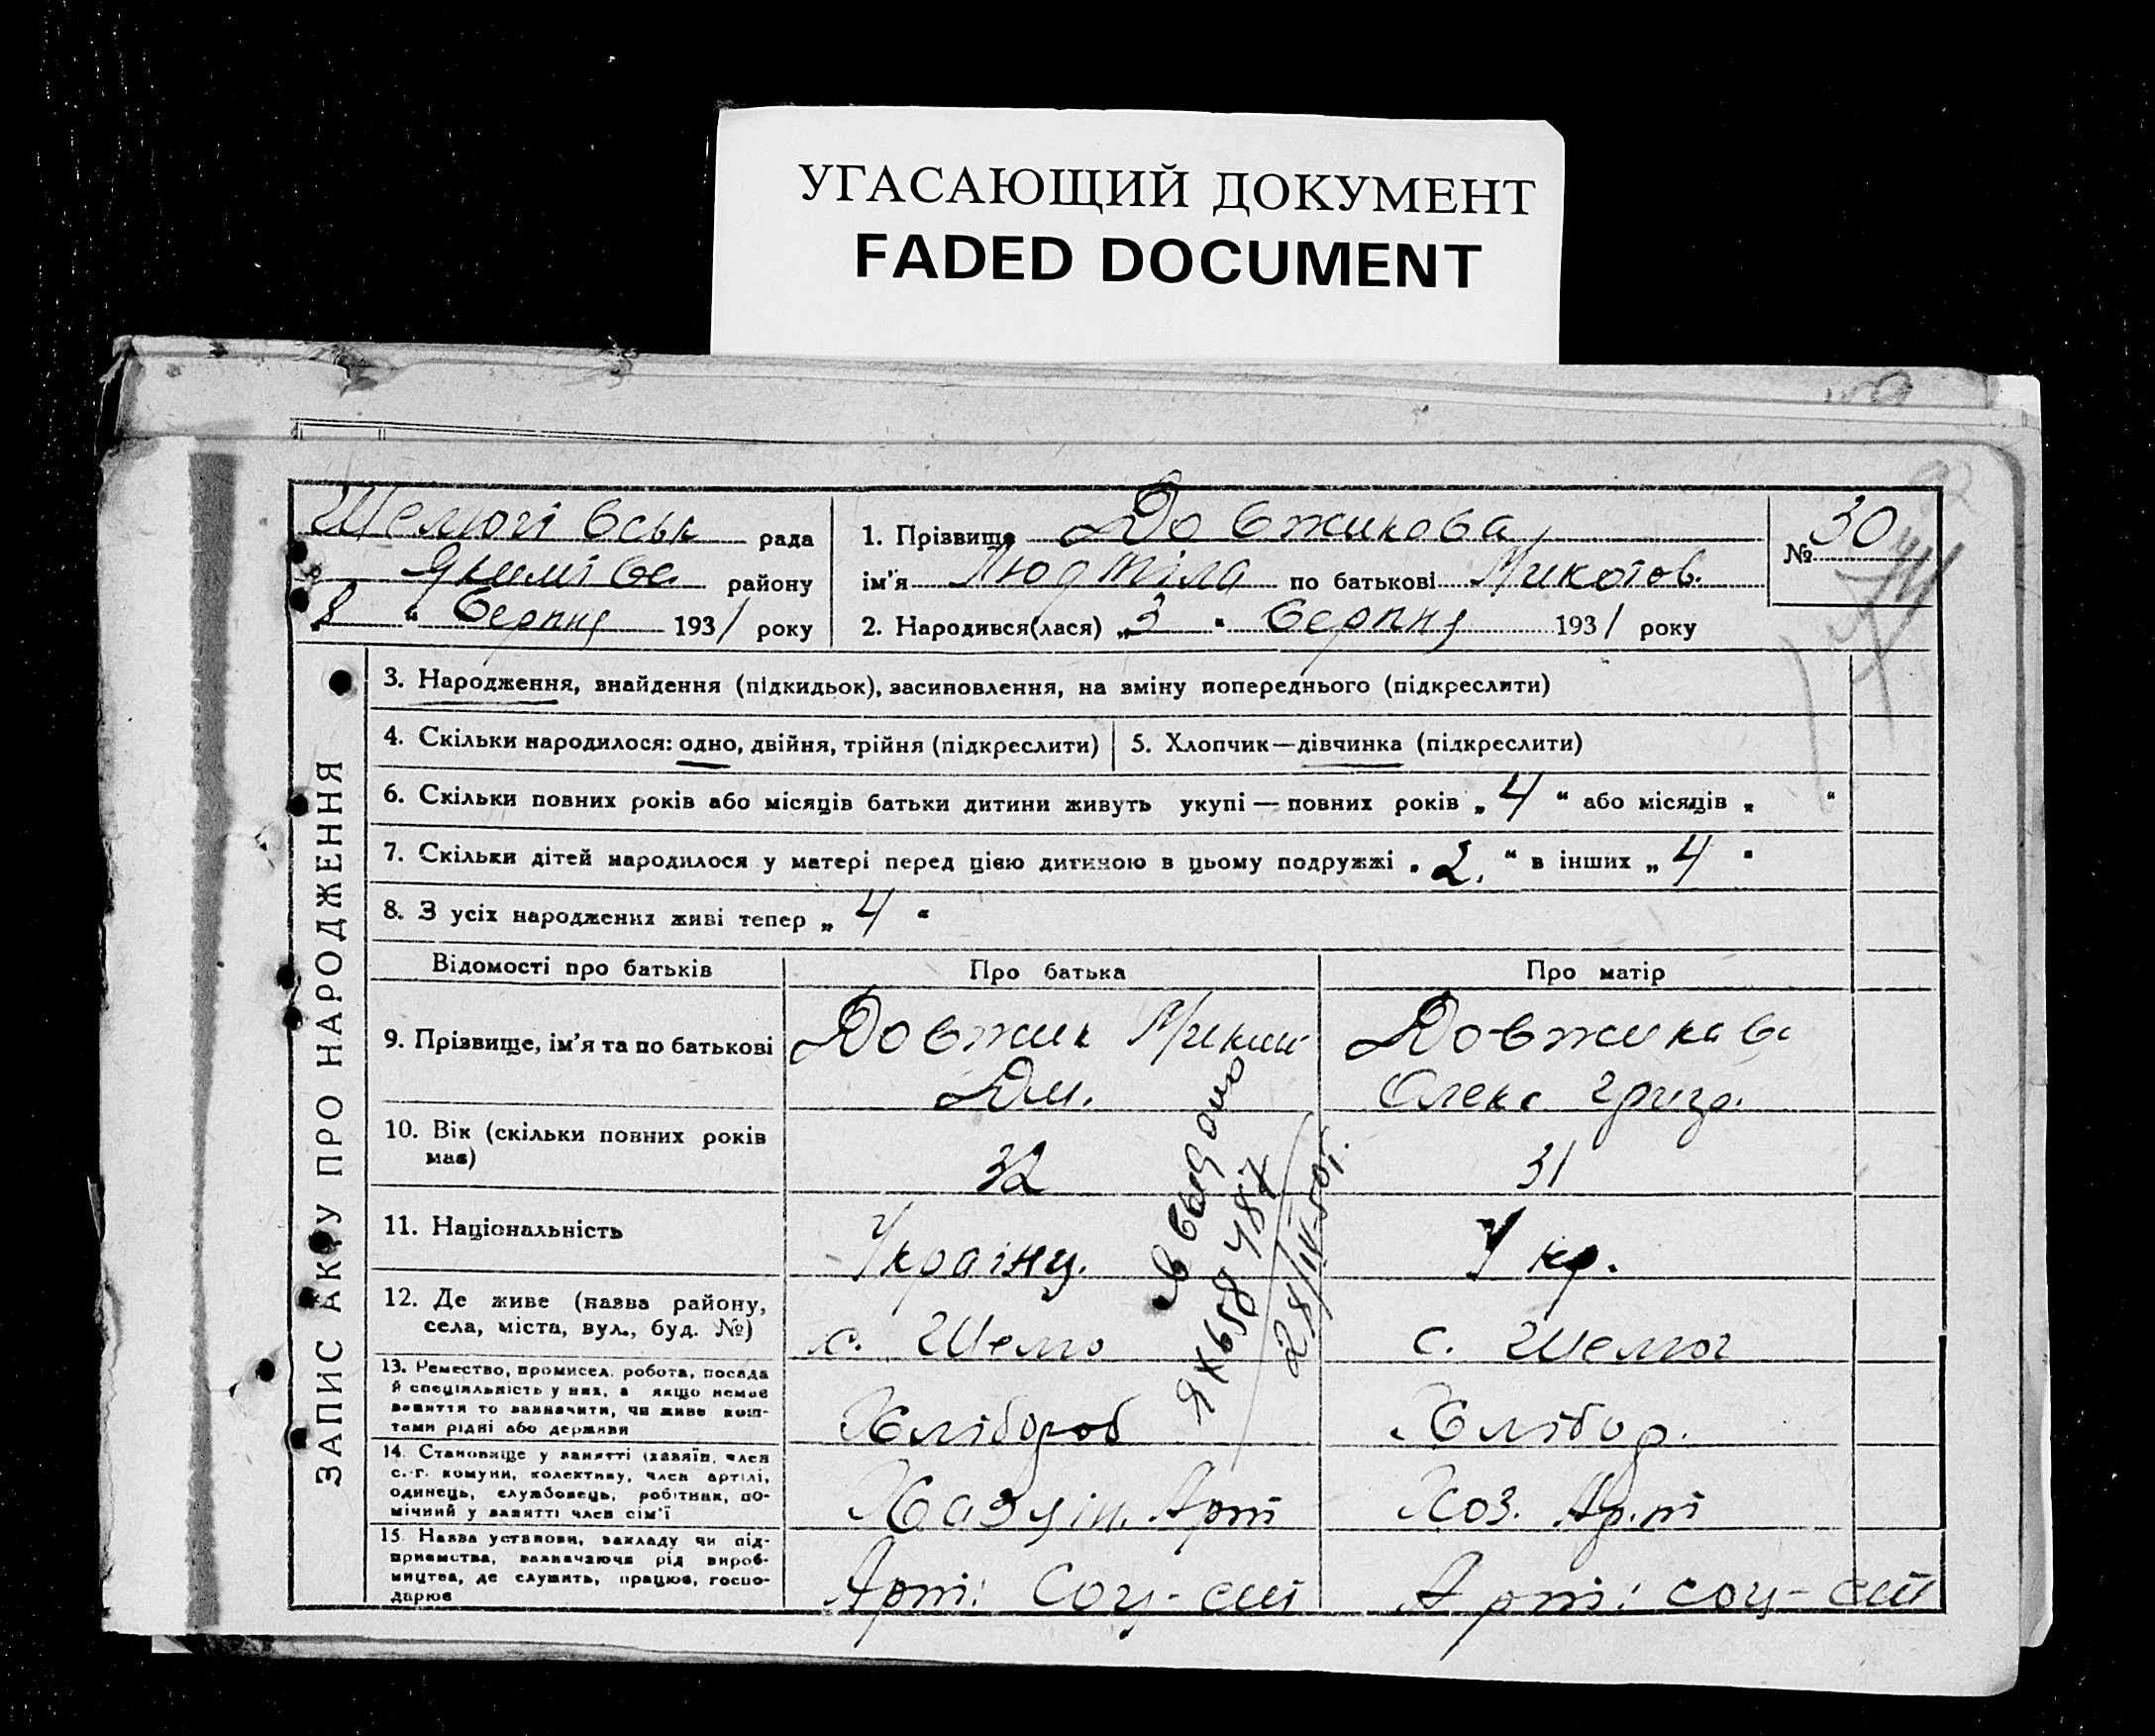 УГАСАЮЩИЙ ДОКУМЕНТ
FADED DOCUMENT
Шелюгівськ рада
Якимівс району
8 " Серпня 1931 року
1. Прізвище Довжикова
ім'я Людміла по батькові
2. Народився(лася) „3 " Серпня 1931 року
№ 30
ЗАПИС АКТУ ПРО НАРОДЖЕННЯ
3. Народження, знайдення (підкидьок), засиновлення, на зміну попереднього (підкреслити)
4. Скільки народилося: одно, двійня, трійня (підкреслити)
5. Хлопчик—дівчинка (підкреслити)
6. Скільки повних років або місяців батьки дитини живуть укупі — повних років „ 4 " або місяців „ "
7. Скільки дітей народилося у матері перед цією дитиною в цьому подружжі „ 2. " в інших „ 4 "
8. З усіх народжених живі тепер „ 4 "
Відомості про батьків
Про батька
Про матір
9. Прізвище, ім'я та по батькові
Довжик
Дм.
Довжикова
Олекс Григо.
10. Вік (скільки повних років
має)
32
31
11. Національність
Українц.
Укр.
12. Де живе (назва району,
села, міста, вул., буд. №)
с. Шелю
с. Шелюг
13. Ремество, промисел, робота, посада
й спеціяльність у них, а якщо немає
заняття то зазначити, чи живе кош-
тами рідні або держави
Хлібороб
Хлібор.
14. Становище у занятті (хазяїн, член
с.-г. комуни, колективу, член артілі,
одинець, службовець, робітник, по-
мічний у занятті член сім'ї
Хазяін. Арт
Хоз. Арт
15. Назва установи, закладу чи під-
приємства, зазначаючи рід вироб-
ництва, де служить, працює, госпо-
дарює
Арт: Соц-
Арт: соц-